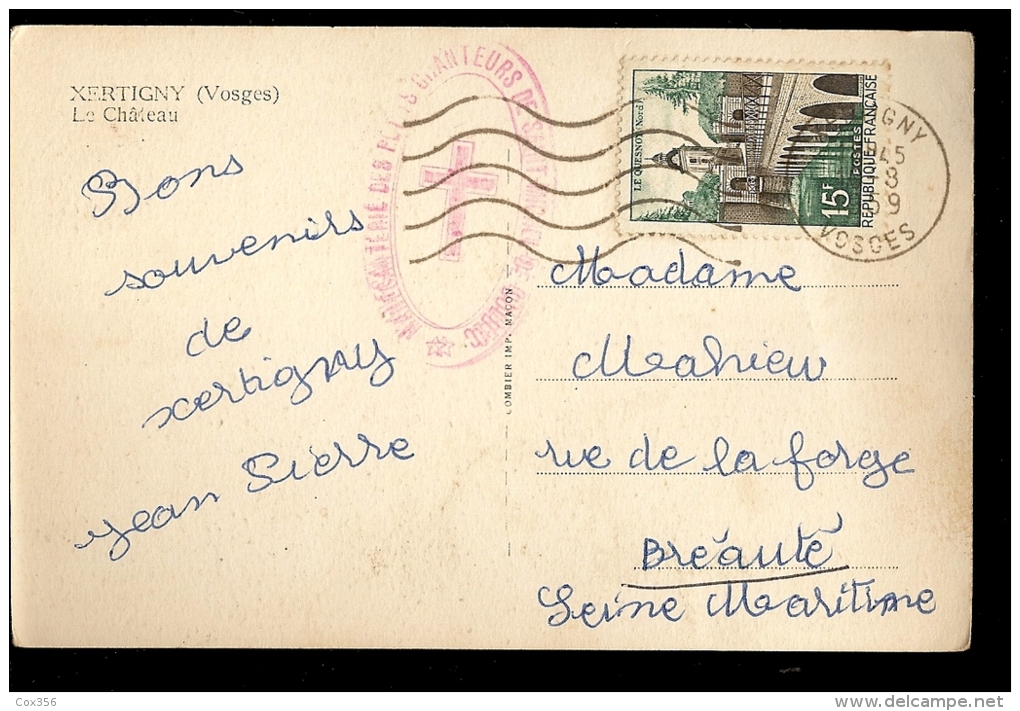 XERTIGNY (Vosges)
Le Château
Bons
souvenirs
de
xertigny
Jean Pierre
CHANTEURS DE SAINT
LE QUESNOY (Nord)
15F
POSTES
REPUBLIQUE FRANÇAISE
GNY
45
8
59
VOSGES
COMBIER IMP. MACON
Madame
Mahieu
rue de la forge
Bréauté
Seine Maritime
Cox356
www.delcampe.net